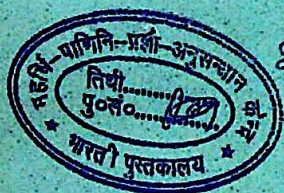 महर्षि-पाणिनि-प्रज्ञा-अनुसन्धान केन्द्र
तिथी..........
पु०सं०..........
★ भारती पुस्तकालय ★